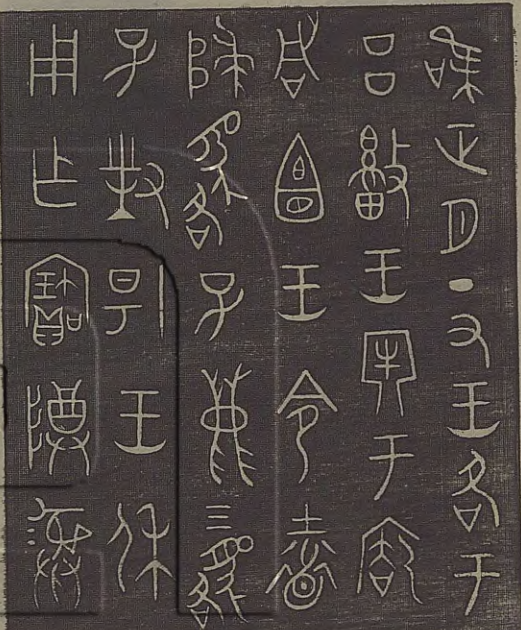 唯正月丁丑王各于
吕𢿢王牢于㡴
咸宜王令士道
歸貉子鹿三貉
子對揚王休
用乍寶尊彝